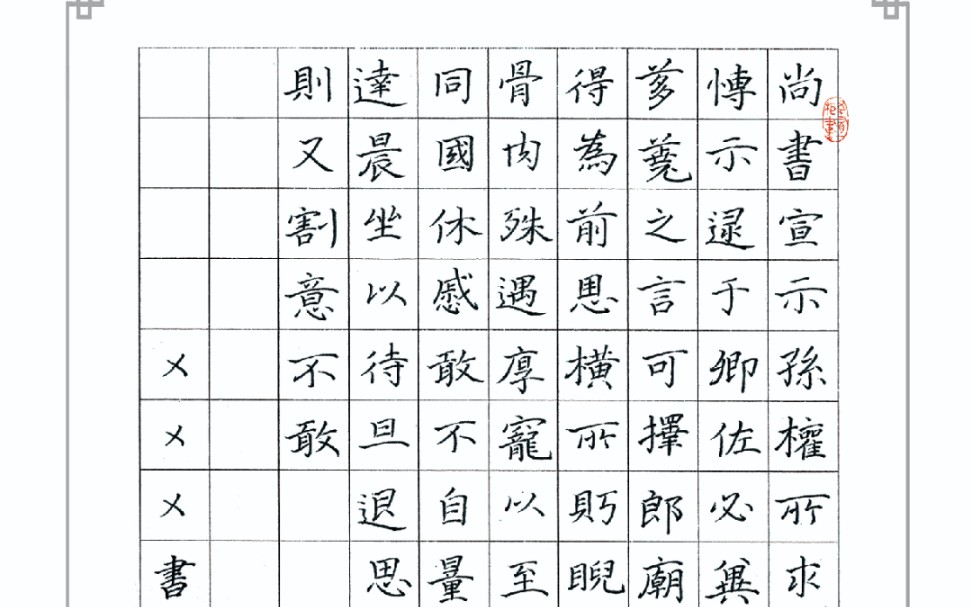 尚書宣示孫權所求
愽示逯于卿佐必兾
芻蕘之言可擇郎廟
得為前恩橫所眄睨
骨肉殊遇厚寵以至
同國休慼敢不自量
達晨坐以待旦退思
則又割意不敢
××× 書